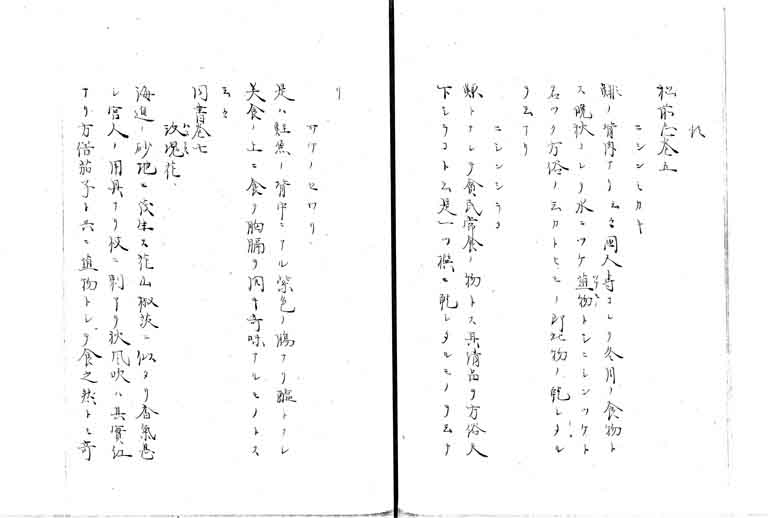 れ
松前志巻五
ニシンミカト
鯡ノ背肉ナリ云々国人専コレヲ冬月ノ食物ト
ス晩秋コレヲ水ニツケ漬物トシニシンツケト
名ツク方俗ノミカトヒモノ即此物ノ乾シタル
ヲ云ナリ
ニシンシラコ
鯟トナシテ食民常食ノ物トス其清品ヲ方俗天
下シラコト云是一ツ撰ミ乾シタルモノヲ云ナ
リ
サケノセワリ
是ハ鮭魚ノ背中ニアル紫色ノ腸ナリ醢トナシ
美食ノ上ニ食ヲ胸膈ヲ同キ奇味ナルモノトス
云々
同書巻七
玫瑰花
海辺ノ砂地ニ茂生ス花山椒茨ニ似タリ香気甚
シ官人ノ用具ナリ枝ニ刺アリ秋風吹ハ其実紅
ナリ方俗茄子ト共ニ漬物トシテ食之然トモ奇